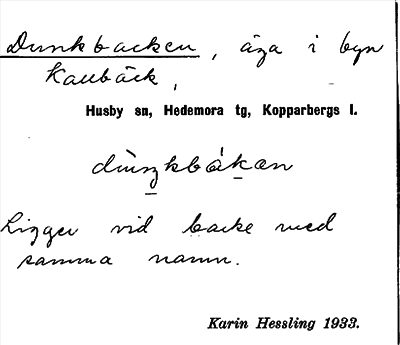 Dunkbacken, äga i byn
Kallbäck,
Husby sn, Hedemora tg, Kopparbergs l.
dùŋkbákæn
Ligger vid backe med
samma namn.
Karin Hessling 1933.